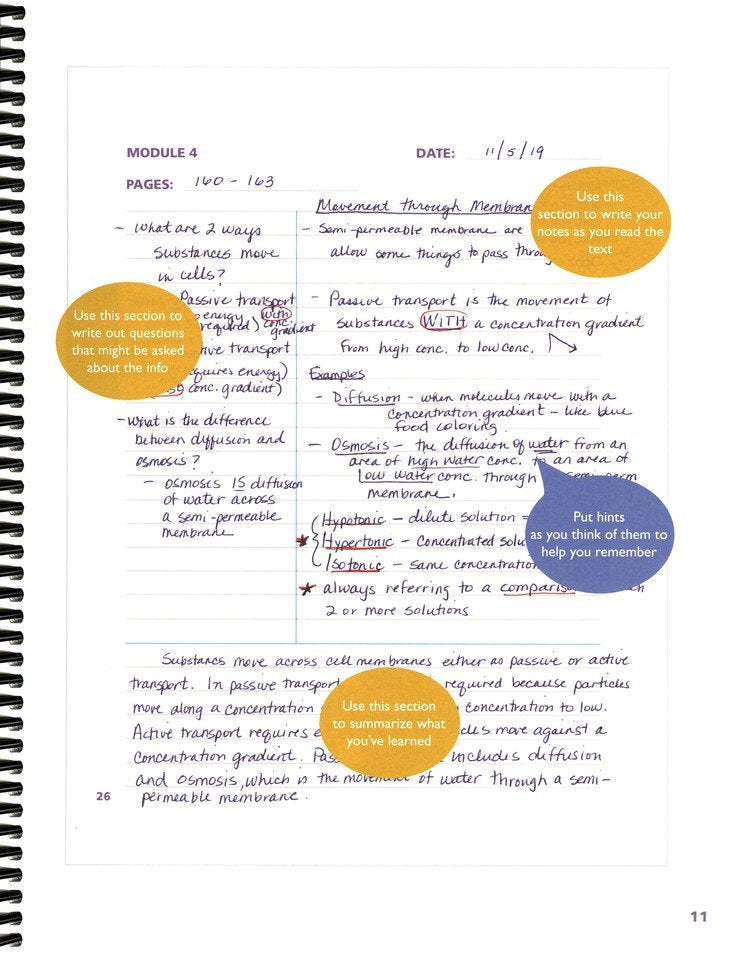 MODULE 4
DATE: 11/5/19
PAGES: 160 - 163
Movement through Membran
- What are 2 ways
substances move
in cells?
Passive transport
energy
required) with conc.
gradient
transport
requires energy)
conc. gradient)
- What is the difference
between diffusion and
osmosis?
- osmosis IS diffusion
of water across
a semi-permeable
membrane
- Semi-permeable membrane are
allow some things to pass throu
- Passive transport is the movement of
substances WITH a concentration gradient
from high conc. to low conc.
Examples
- Diffusion - when molecules move with a
concentration gradient - like blue
food coloring.
- Osmosis - the diffusion of water from an
area of high water conc. to an area of
low water conc. through
membrane.
Hypotonic - dilute solution =
Hypertonic - concentrated solu
Isotonic - same concentration
always referring to a comparis
2 or more solutions
Substancs move across cell membranes either as passive or active
transport. In passive transport required because particles
move along a concentration concentration to low.
Active transport requires move against a
concentration gradient. Pas includes diffusion
and osmosis, which is the movement of water through a semi-
permeable membrane.
Use this
section to write your
notes as you read the
text
Use this section to
write out questions
that might be asked
about the info
Put hints
as you think of them to
help you remember
Use this section
to summarize what
you've learned
26
11